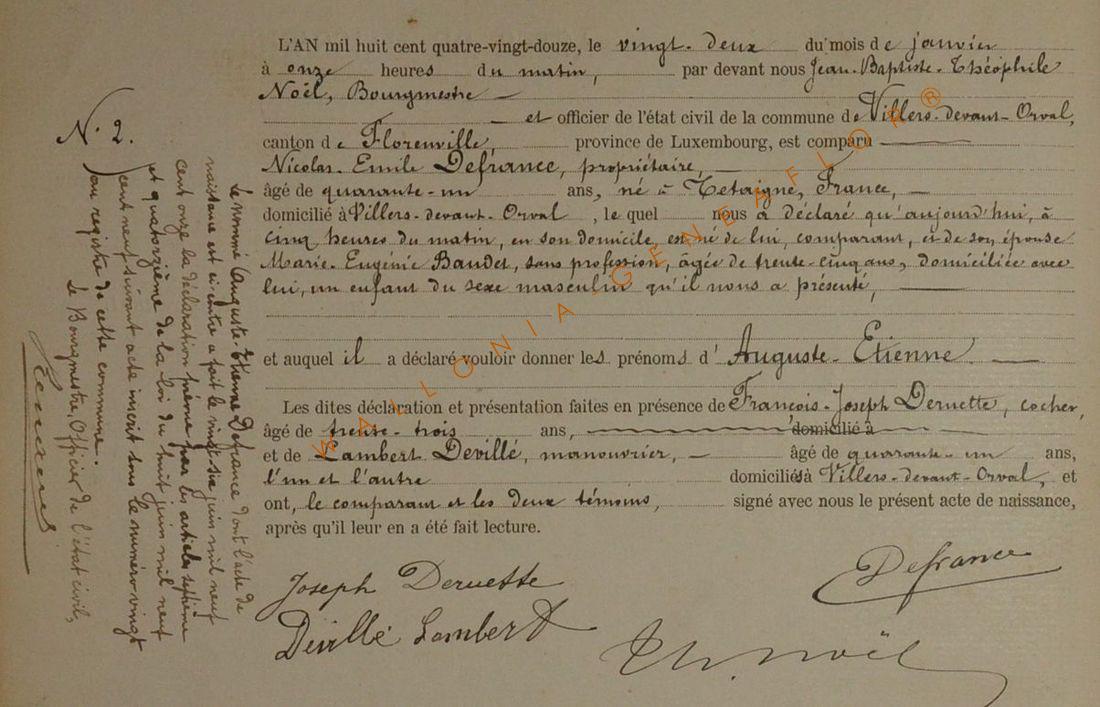 L'AN mil huit cent quatre-vingt-douze, le vingt-deux du mois de janvier
à onze heures du matin, par devant nous Jean-Baptiste-Théophile
Noël, Bourgmestre —
— et officier de l'état civil de la commune de Villers-devant-Orval,
canton de Florenville, province de Luxembourg, est comparu —
Nicolas-Emile Defrance, propriétaire, —
âgé de quarante-un ans, né à Tétaigne, France, —
domicilié à Villers-devant-Orval, le quel nous a déclaré qu'aujourd'hui, à
cinq heures du matin, en son domicile, est né de lui, comparant, et de son épouse
Marie-Eugénie Baudet, sans profession, âgée de trente-cinq ans, domiciliée avec
lui, un enfant du sexe masculin qu'il nous a présenté, —
et auquel il a déclaré vouloir donner les prénoms d'Auguste-Etienne —
Les dites déclaration et présentation faites en présence de François-Joseph Deruette, cocher,
âgé de trente-trois ans, domicilié à
et de Lambert Devillé, manouvrier, — âgé de quarante-un ans,
l'un et l'autre domiciliés à Villers-devant-Orval, et
ont, le comparant et les deux témoins, signé avec nous le présent acte de naissance,
après qu'il leur en a été fait lecture.
Joseph Deruette
Defrance
Devillé Lambert
Th. Noël
N. 2.
Le nommé Auguste-Etienne Defrance dont l'acte de
naissance est ci-contre a fait le vingt-six juin mil neuf
cent onze la déclaration prévue par les articles septième
et quatorzième de la loi du huit juin mil neuf
cent neuf suivant acte inscrit sous le numéro vingt
au registre de cette commune.
Le Bourgmestre, Officier de l'état civil,
WALLONIA-GENEAFLOR®